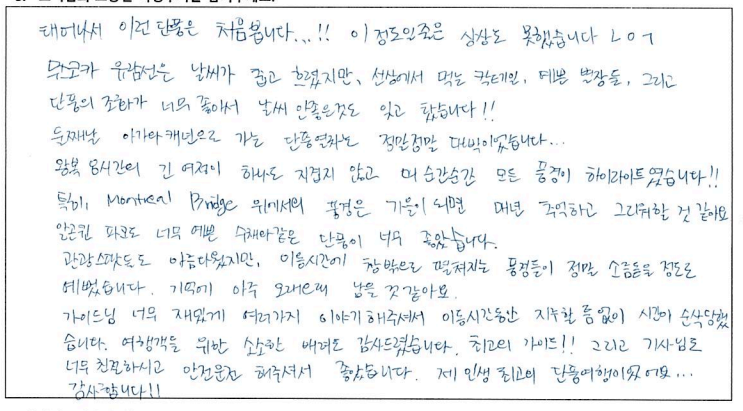 태어나서 이런 단풍은 처음봅니다...!! 이 정도인줄은 상상도 못했습니다 ㄴㅇㄱ
무스코카 유람선은 날씨가 춥고 흐렸지만, 선상에서 먹는 칵테일, 예쁜 별장들, 그리고
단풍의 조화가 너무 좋아서 날씨 안좋은것도 잊고 탔습니다!!
둘째날 아가와캐년으로 가는 단풍열차도 정말정말 대박이었습니다...
왕복 8시간의 긴 여정이 하나도 지겹지 않고 매 순간순간 모든 풍경이 하이라이트였습니다!!
특히, Montreal Bridge 위에서의 풍경은 가을이 되면 매년 추억하고 그리워할 것 같아요
알곤퀸 파크도 너무 예쁜 수채화같은 단풍이 너무 좋았습니다.
관광스팟들도 아름다웠지만, 이동시간에 창밖으로 펼쳐지는 풍경들이 정말 소름돋을 정도로
예뻤습니다. 기억에 아주 오래오래 남을 것 같아요.
가이드님 너무 재밌게 여러가지 이야기 해주셔서 이동시간동안 지루할 틈 없이 시간이 순삭당했
습니다. 여행객을 위한 소소한 배려도 감사드렸습니다. 최고의 가이드!! 그리고 기사님도
너무 친절하시고 안전운전 해주셔서 좋았습니다. 제 인생 최고의 단풍여행이었어요...
감사합니다!!